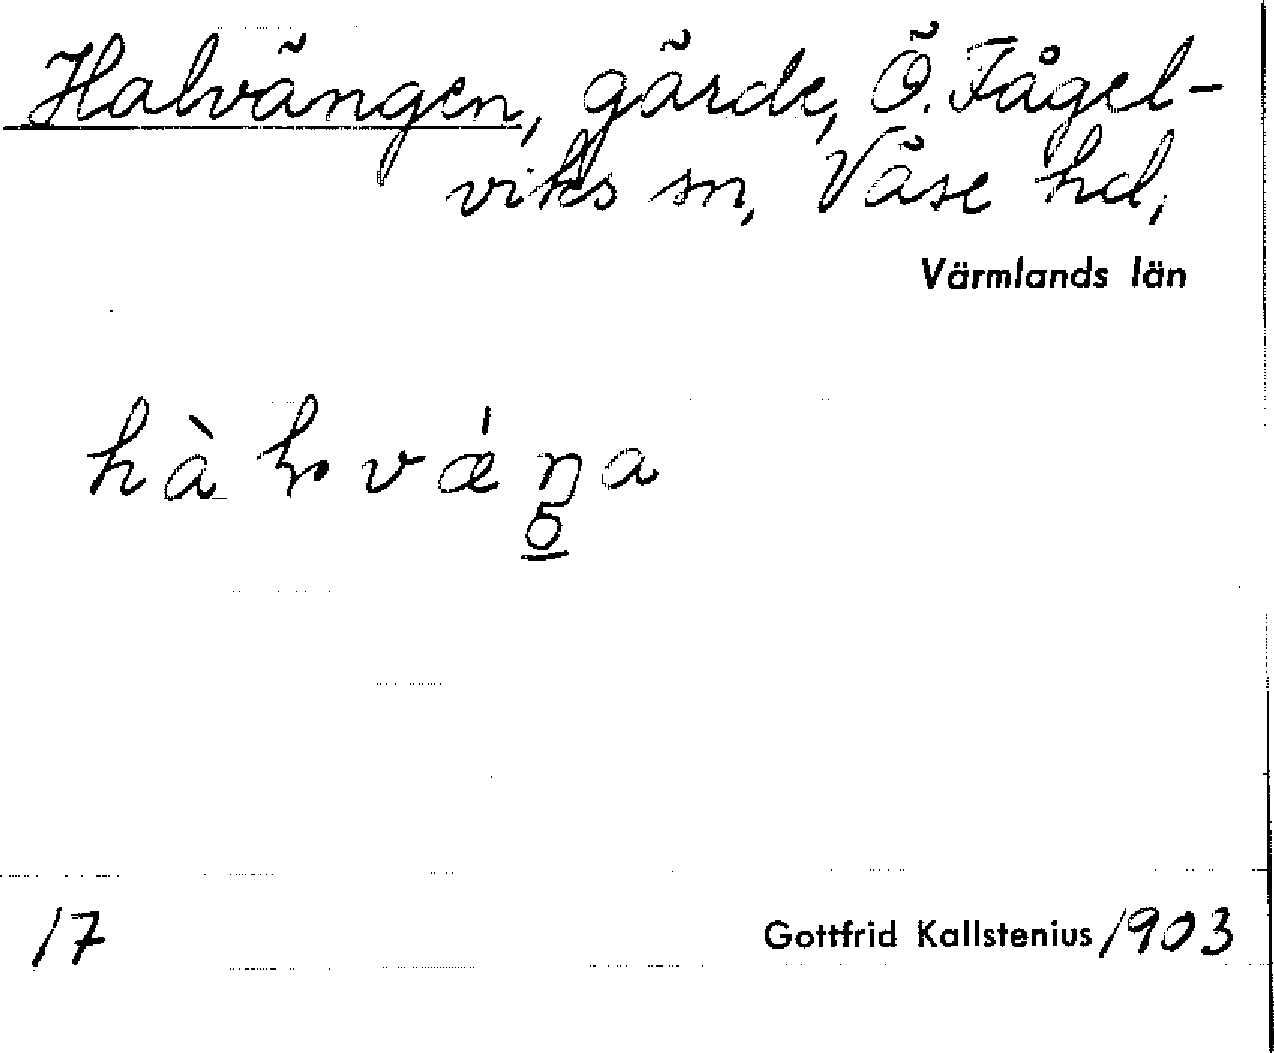 Halvängen, gärde, Ö. Fågel-
viks sn, Väse hd,
Värmlands län
17
Gottfrid Kallstenius 1903